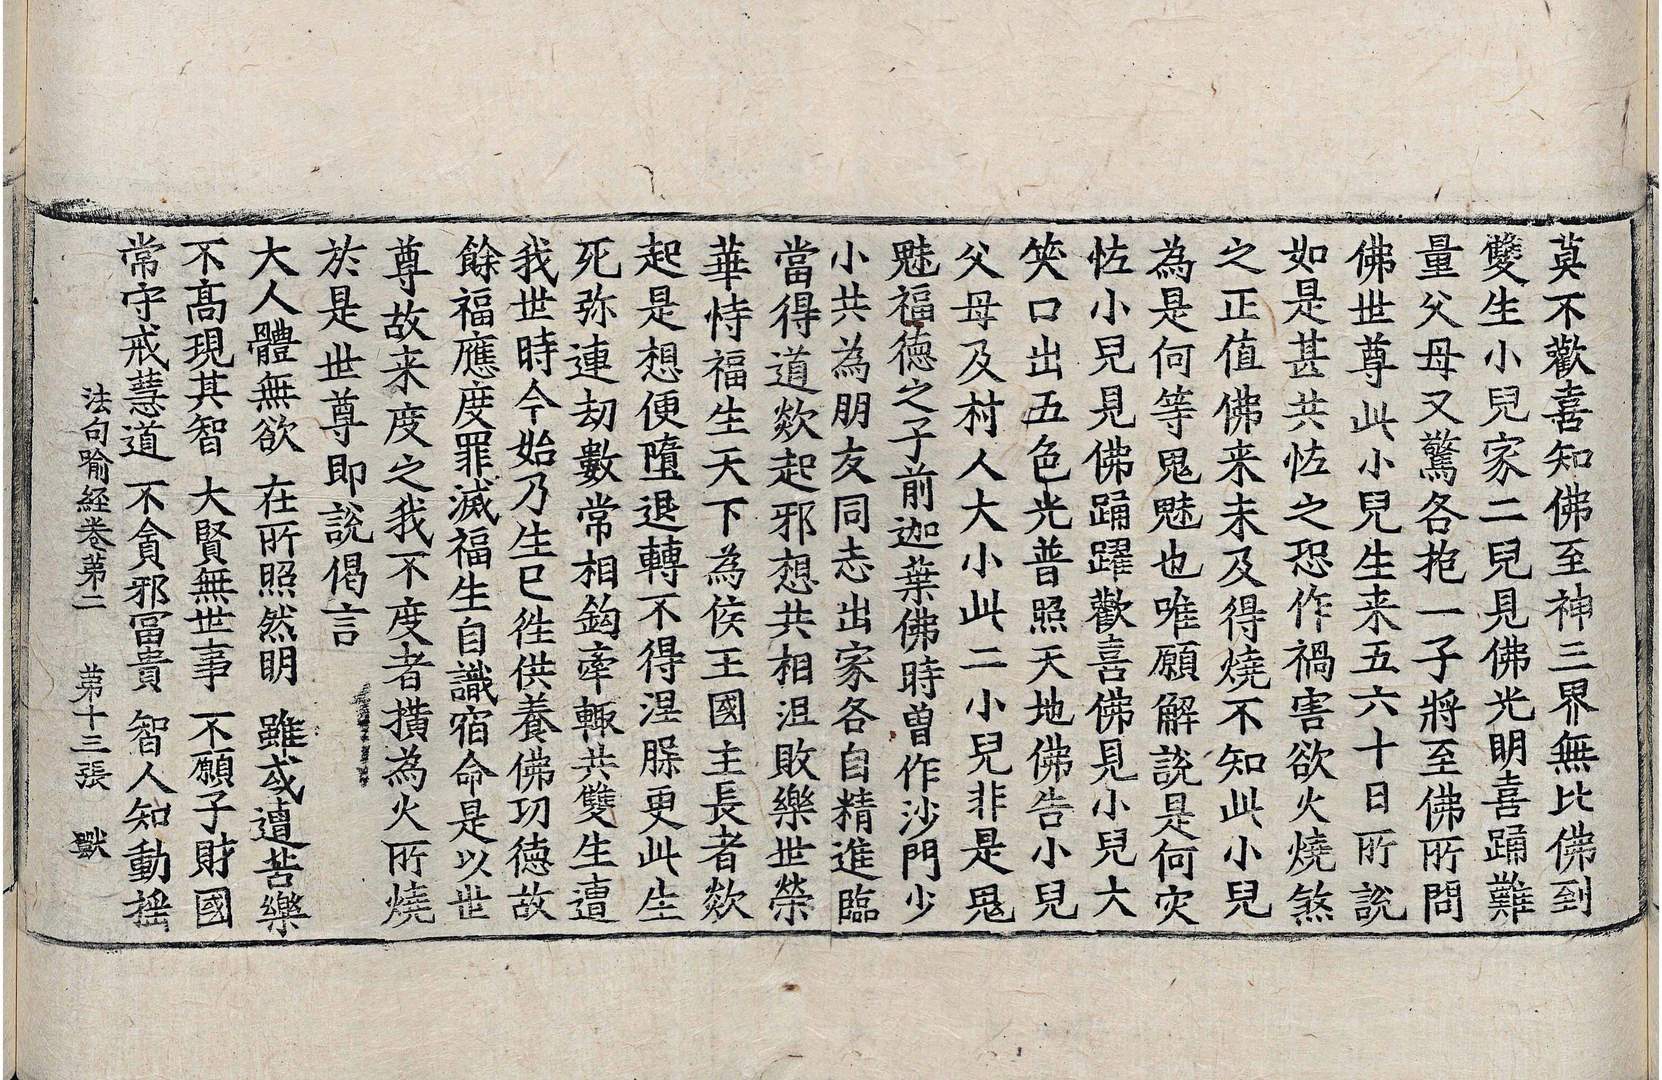 莫不歡喜知佛至神三界無比佛到
雙生小兒家二兒見佛光明喜踊難
量父母又驚各抱一子將至佛所問
佛世尊此小兒生来五六十日所說
如是甚共恠之恐作禍害欲火燒煞
之正值佛来未及得燒不知此小兒
為是何等鬼魅也唯願解說是何灾
恠小兒見佛踊躍歡喜佛見小兒大
笑口出五色光普照天地佛告小兒
父母及村人大小此二小兒非是鬼
魅福德之子前迦葉佛時曾作沙門少
小共為朋友同志出家各自精進臨
當得道欻起邪想共相沮敗樂世榮
華恃福生天下為侯王國主長者欻
起是想便墮退轉不得涅槃更此生
死弥連劫數常相鉤牽輙共雙生遭
我世時今始乃生已徃供養佛功德故
餘福應度罪滅福生自識宿命是以世
尊故来度之我不度者横為火所燒
於是世尊即說偈言
大人體無欲 在所照然明 雖或遭苦樂
不髙現其智 大賢無世事 不願子財國
常守戒慧道 不貪邪冨貴 智人知動摇
法句喻經卷第二 第十三張 獸